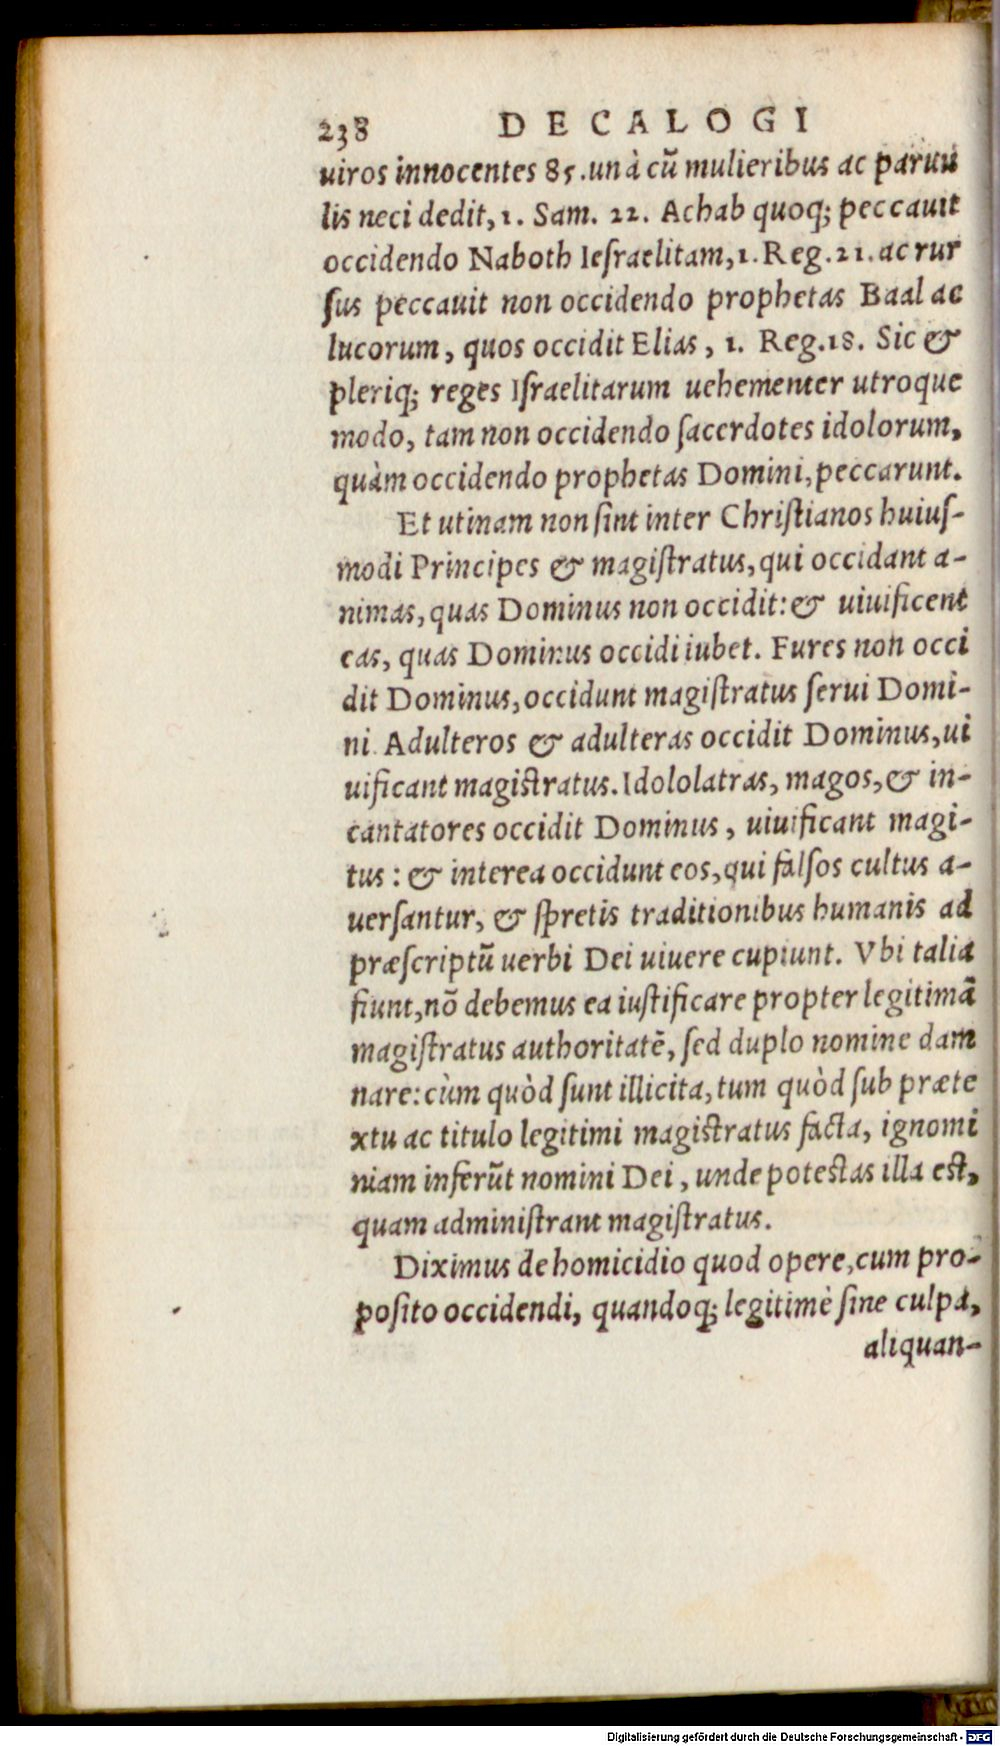 238 DECALOGI
uiros innocentes 85. unà cũ mulieribus ac paruu
lis neci dedit, 1. Sam. 22. Achab quoq; peccauit
occidendo Naboth Ieſraelitam, 1. Reg. 21. ac rur
ſus peccauit non occidendo prophetas Baal ac
lucorum, quos occidit Elias, 1. Reg. 18. Sic &
pleriq; reges Iſraelitarum uehementer utroque
modo, tam non occidendo ſacerdotes idolorum,
quàm occidendo prophetas Domini, peccarunt.
Et utinam non ſint inter Chriſtianos huiuſ-
modi Principes & magiſtratus, qui occidant a-
nimas, quas Dominus non occidit: & uiuificent
eas, quas Dominus occidi iubet. Fures non occi
dit Dominus, occidunt magiſtratus ſerui Domi-
ni. Adulteros & adulteras occidit Dominus, ui
uificant magiſtratus. Idololatras, magos, & in-
cantatores occidit Dominus, uiuificant magi-
tus: & interea occidunt eos, qui falſos cultus a-
uerſantur, & ſpretis traditionibus humanis ad
præſcriptũ uerbi Dei uiuere cupiunt. Vbi talia
fiunt, nõ debemus ea iuſtificare propter legitimã
magiſtratus authoritatẽ, ſed duplo nomine dam
nare: cùm quòd ſunt illicita, tum quòd ſub præte
xtu ac titulo legitimi magiſtratus facta, ignomi
niam inferũt nomini Dei, unde poteſtas illa eſt,
quam adminiſtrant magiſtratus.
Diximus de homicidio quod opere, cum pro-
poſito occidendi, quandoq; legitimè ſine culpa,
aliquan-
Digitalisierung gefördert durch die Deutsche Forschungsgemeinschaft - DFG